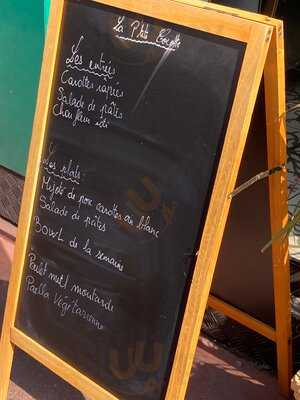 La P'tite
Les entrées
Carottes rapées
Salade de pâtes
Chou fleur rôti
Les plats:
Mijoté de porc carottes au blanc
Salade de pâtes
Bowl de la semaine
Poulet miel moutarde
Paella végétarienne